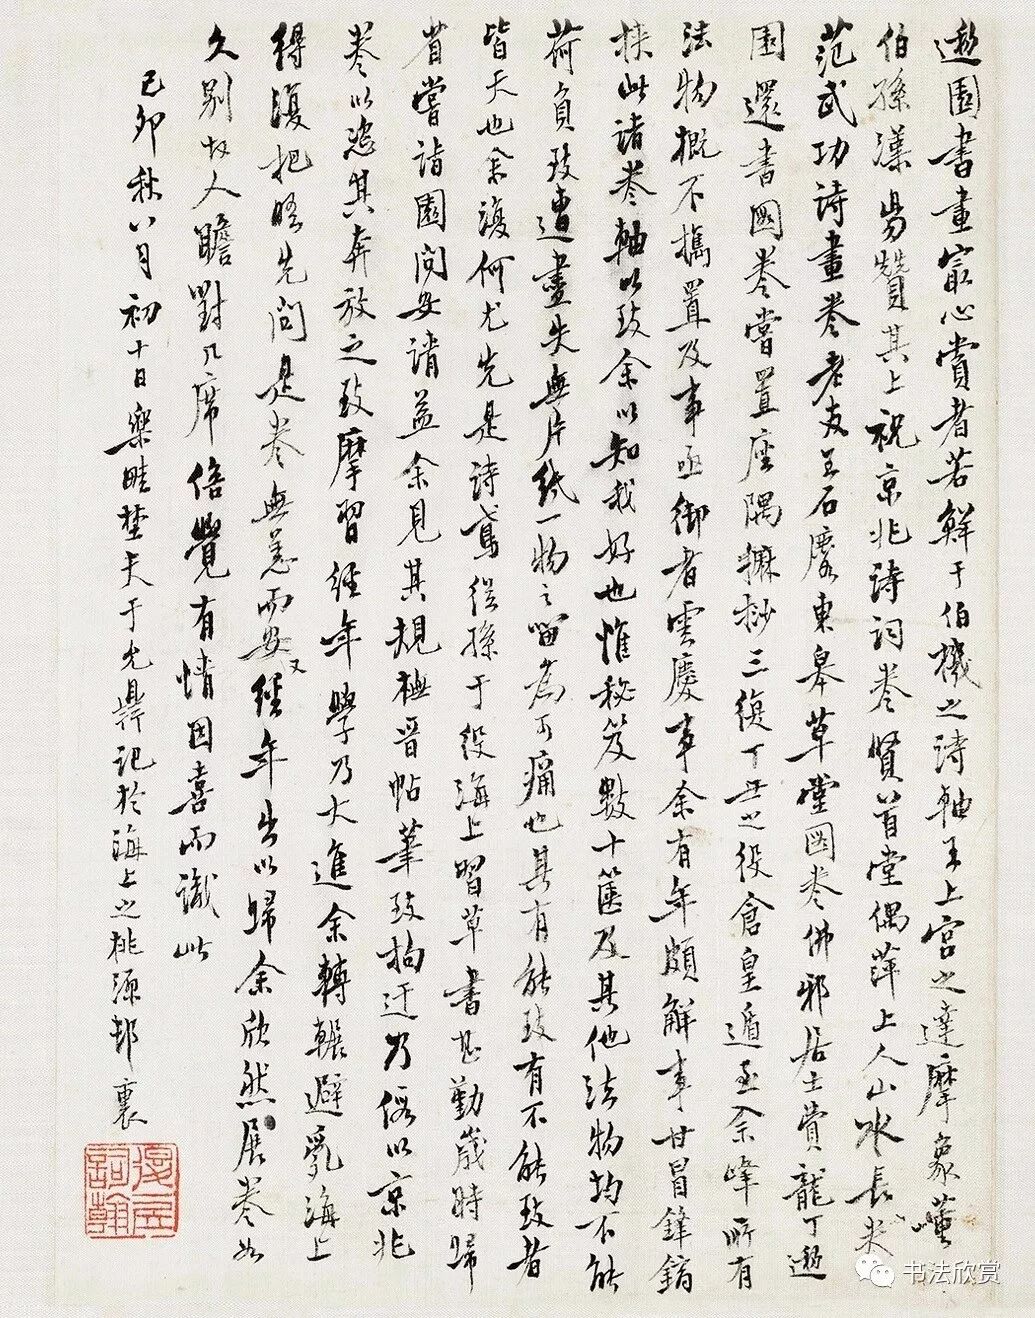 遯園書畫最心賞者若鮮于伯機之詩軸王上宮之達摩象董
伯孫漢易贊其上祝京兆詩詞卷賢首堂偶萍上人山水長卷
范武功詩畫卷老友王石廬東皋草堂圖卷佛邪居士賞龍丁遯
園還書圖卷嘗置座隅摩挲三復丁丑之役倉皇遁至佘峰所有
法物概不攜置及事亟御者雲慶事余有年頗解事甘冒鋒鏑
挾此諸卷軸以致余以知我好也惟秘笈數十篋及其他法物均不能
荷負致遭盡失無片紙一物之留為可痛也其有能致有不能致者
皆天也余復何尤先是詩鳶從孫于役海上習草書甚勤歲時歸
省嘗詣園問安請益余見其規橅晉帖筆致拘迂乃假以京兆
卷以恣其奔放之致摩習經年學乃大進余轉輾避亂海上
得復把晤先問是卷無恙而安又經年出以歸余欣然展卷如
久別故人瞻對几席倍覺有情因喜而識此
己卯秋八月初十日樂畦埜夫于允鼎記於海上之桃源邨裏
復丞詞翰
书法欣赏